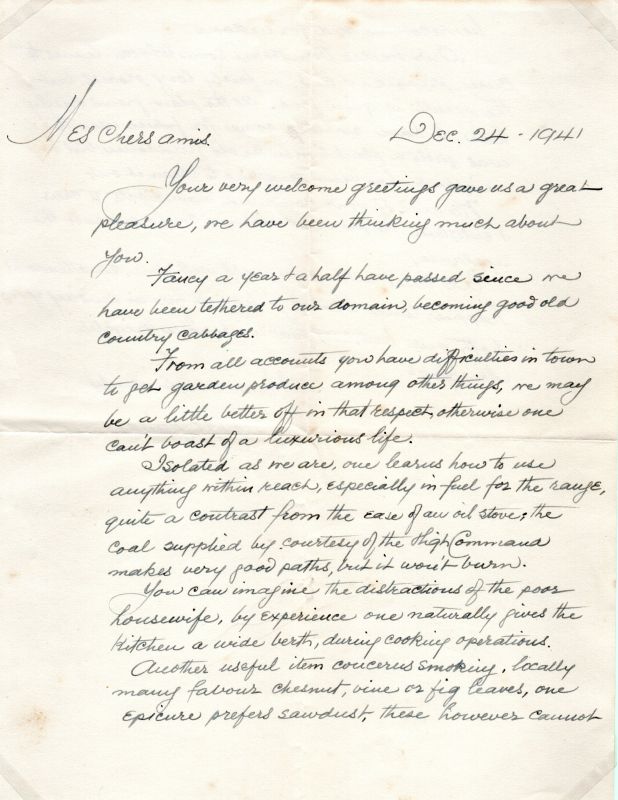 Mes Chers amis.
Dec. 24 - 1941
Your very welcome greetings gave us a great
pleasure, we have been thinking much about
you.
Fancy a year & a half have passed since we
have been tethered to our domain, becoming good old
country cabbages.
From all accounts you have difficulties in town
to get garden produce among other things, we may
be a little better off in that respect, otherwise one
can't boast of a luxurious life.
Isolated as we are, one learns how to use
anything within reach, especially in fuel for the range,
quite a contrast from the ease of an oil stove; the
coal supplied by courtesy of the High Command
makes very good paths, but it won't burn.
You can imagine the distractions of the poor
housewife, by experience one naturally gives the
kitchen a wide berth, during cooking operations.
Another useful item concerns smoking, locally
many favour chesnut, vine or fig leaves, one
epicure prefers sawdust, these however cannot